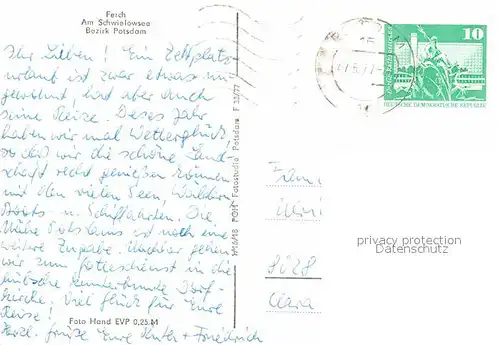 Ferch
Am Schwielowsee
Bezirk Potsdam
Ihr Lieben! Ein Zeltplatz-
urlaub ist zwar etwas un-
gewohnt, hat aber auch
seine Reize. Dieses Jahr
haben wir mal Wetterglück
so daß wir die schöne Land-
schaft recht genießen können
mit den vielen Seen, Wäldern
Boots u. Schiffahrten. Die
Nähe Potsdams ist noch eine
weitere Zugabe. Nachher gehen
wir zum Gottesdienst in die
hübsche Dorf-
kirche. Viel Glück für Eure
Reise!
Herzl. Grüße Eure Ruth + Friedrich
Foto Hand EVP 0,25 M
PGH Fotostudio Potsdam
10
DEUTSCHE DEMOKRATISCHE REPUBLIK
Fam.
privacy protection
Datenschutz